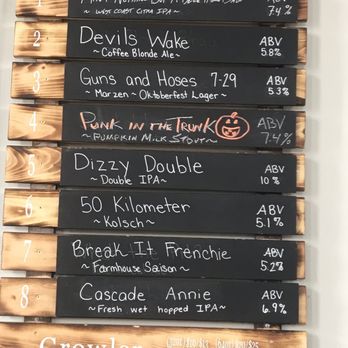 1
~ West Coast Citra IPA ~
7.4%
2
Devils Wake
~ Coffee Blonde Ale ~
ABV
5.8%
3
Guns and Hoses 7-29
~ Marzen ~ Oktoberfest Lager ~
ABV
5.3%
4
Punk in the Trunk
~ Pumpkin Milk Stout ~
ABV
7.4%
5
Dizzy Double
~ Double IPA ~
ABV
10%
6
50 Kilometer
~ Kolsch ~
ABV
5.1%
7
Break It Frenchie
~ Farmhouse Saison ~
ABV
5.2%
8
Cascade Annie
~ Fresh wet hopped IPA ~
ABV
6.9%
Growler